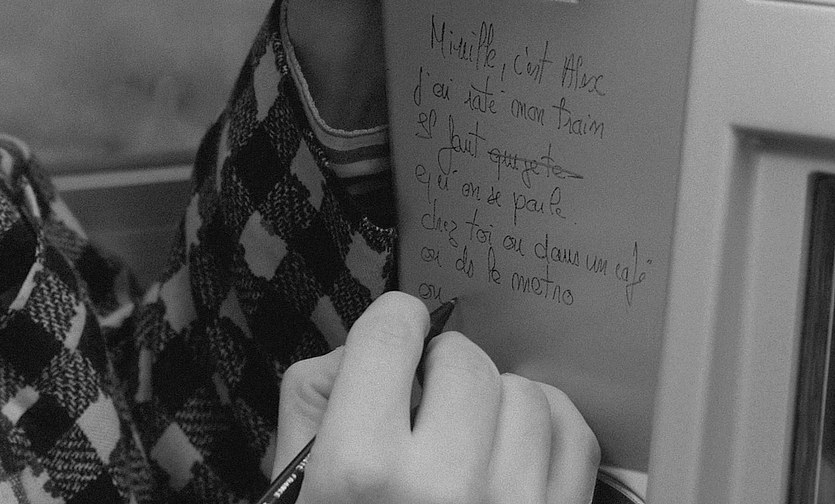 Mireille, c'est Alex
j'ai raté mon train
Il faut que je te
qu'on se parle.
chez toi ou dans un café
ou ds le metro
ou